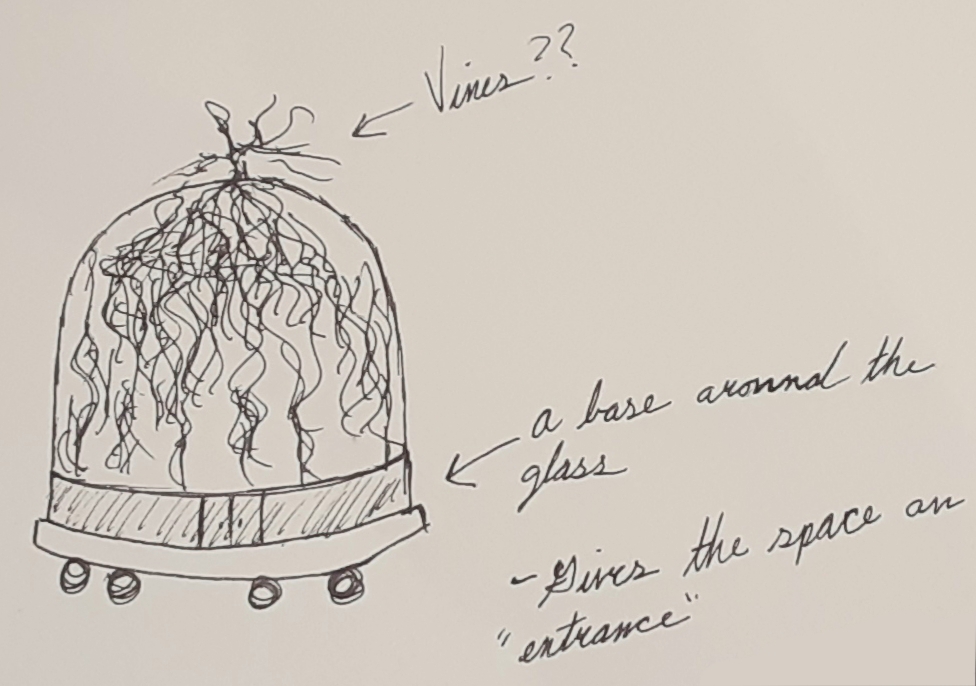 Vines??
a base around the
glass
- Gives the space an
"entrance"